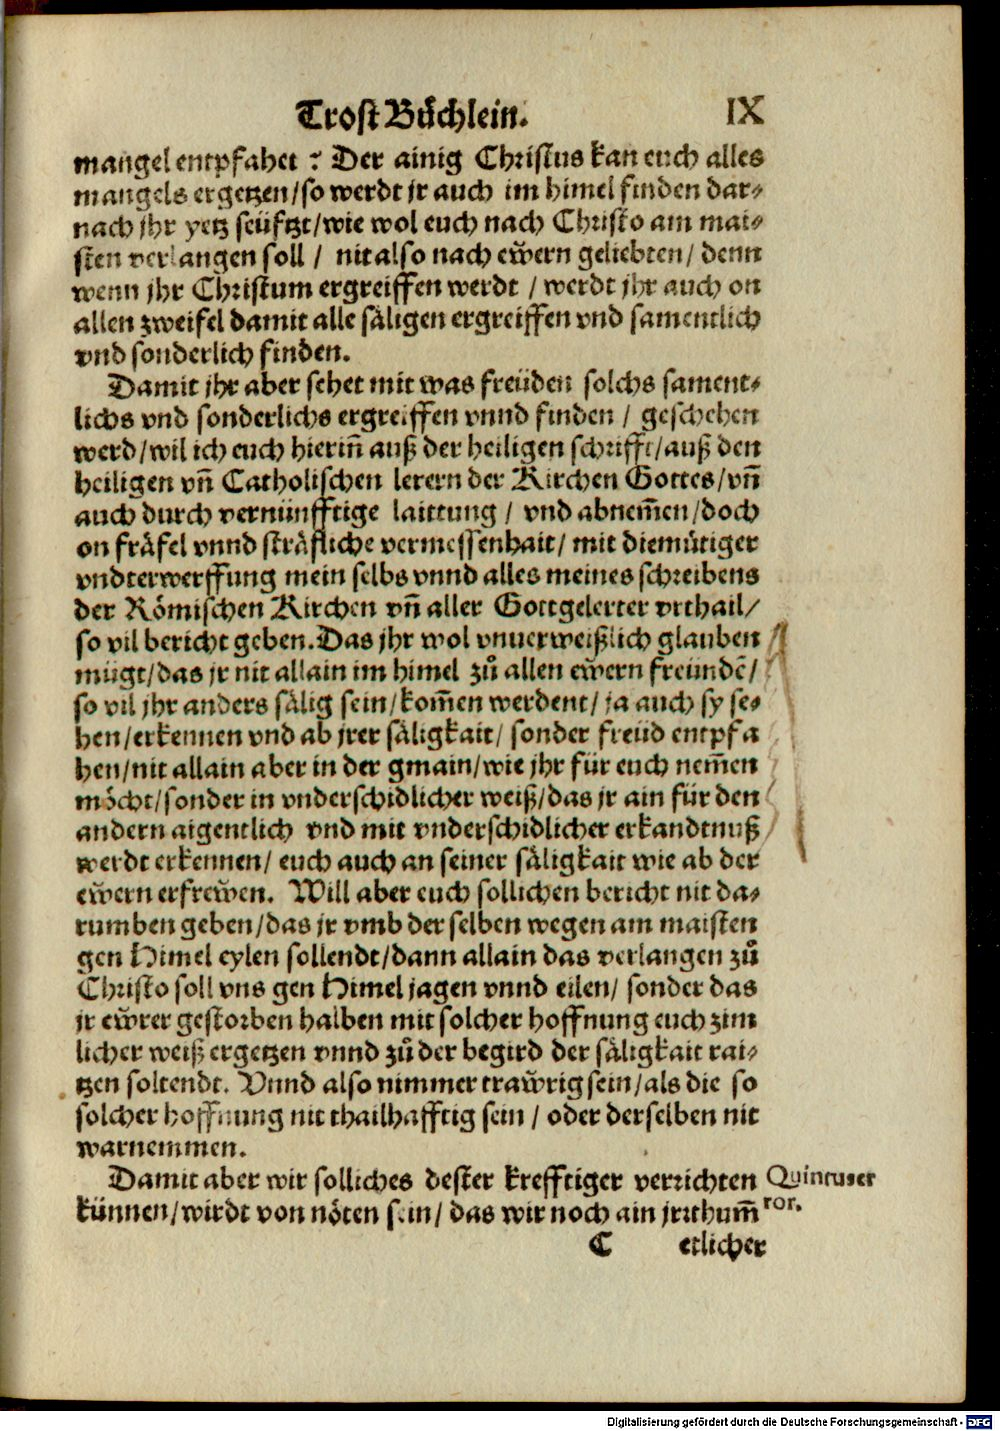 Trost Bůchlein. IX
mangel entpfahet ? Der ainig Christus kan euch alles
mangels ergetzen/so werdt jr auch im himel finden dar⸗
nach jhr yetz seüfftzt/wie wol euch nach Christo am mai⸗
sten verlangen soll / nit also nach ew̃ern geliebten/ denn
wenn jhr Christum ergreiffen werdt / werdt jhr auch on
allen zweifel damit alle säligen ergreiffen vnd samentlich
vnd sonderlich finden.
Damit jhr aber sehet mit was freüden solchs sament⸗
lichs vnd sonderlichs ergreiffen vnnd finden / geschehen
werd/wil ich euch hieriñ auß der heiligen schrifft/auß den
heiligen vñ Catholischen lerern der Kirchen Gottes/vñ
auch durch vernünfftige laittung / vnd abnem̃en/doch
on fräfel vnnd sträfliche vermessenhait/ mit diemütiger
vndterwerffung mein selbs vnnd alles meines schreibens
der Römischen Kirchen vñ aller Gottgelerter vrthail/
so vil bericht geben.Das jhr wol vnuerweißlich glauben
mügt/das jr nit allain im himel zů allen ew̃ern freündẽ/
so vil jhr anders sälig sein/kom̃en werdent/ja auch sy se⸗
hen/erkennen vnd ab jrer säligkait/ sonder freüd entpfa
hen/nit allain aber in der gmain/wie jhr für euch nem̃en
möcht/sonder in vnderschidlicher weiß/das jr ain für den
andern aigentlich vnd mit vnderschidlicher erkandtnuß
werdt erkennen/ euch auch an seiner säligkait wie ab der
ew̃ern erfrew̃en. Will aber euch sollichen bericht nit da⸗
rumben geben/das jr vmb der selben wegen am maisten
gen Himel eylen sollendt/dann allain das verlangen zů
Christo soll vns gen Himel jagen vnnd eilen/ sonder das
jr ew̃rer gestorben halben mit solcher hoffnung euch zim
licher weiß ergetzen vnnd zů der begird der säligkait rai⸗
tzen soltendt. Vnnd also nimmer traw̃rig sein/als die so
solcher hoffnung nit thailhafftig sein / oder derselben nit
warnemmen.
Damit aber wir solliches dester krefftiger verrichten
künnen/wirdt von nöten sein/ das wir noch ain jrrthum̃
Quintus er
ror.
C etlicher
Digitalisierung gefördert durch die Deutsche Forschungsgemeinschaft - DFG